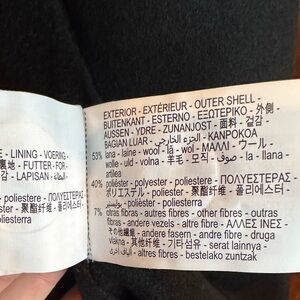 EXTERIOR - EXTÉRIEUR - OUTER SHELL -
BUITENKANT - ESTERNO - ΕΞΩΤΕΡΙΚΟ - 外側 -
AUSSEN - YDRE - ZUNANJOST - 面料 - 겉감 -
BAGIAN LUAR - الجزء الخارجي - KANPOKOA
53% lana - laine - wool - lã - wol - ΜΑΛΛΙ - ウール -
wolle - uld - volna - 羊毛 - 모직 - صوف - la - llana -
artilea
40% poliéster - polyester - poliestere - ΠΟΛΥΕΣΤΕΡΑΣ -
ポリエステル - poliester - 聚酯纤维 - 폴리에스터 -
بوليستير - poliesterra
7% otras fibras - autres fibres - other fibres - outras
fibras - andere vezels - altre fibre - ΑΛΛΕΣ ΙΝΕΣ -
その他繊維 - andere fasern - andre fibre - druga
vlakna - 其他纤维 - 기타섬유 - serat lainnya -
ألياف أخرى - altres fibres - bestelako zuntzak
- LINING - VOERING -
裏地 - FUTTER - FOR-
안감 - LAPISAN - البطانة -
- poliestere - ΠΟΛΥΕΣ-
- 聚酯纤维 - 폴리에스